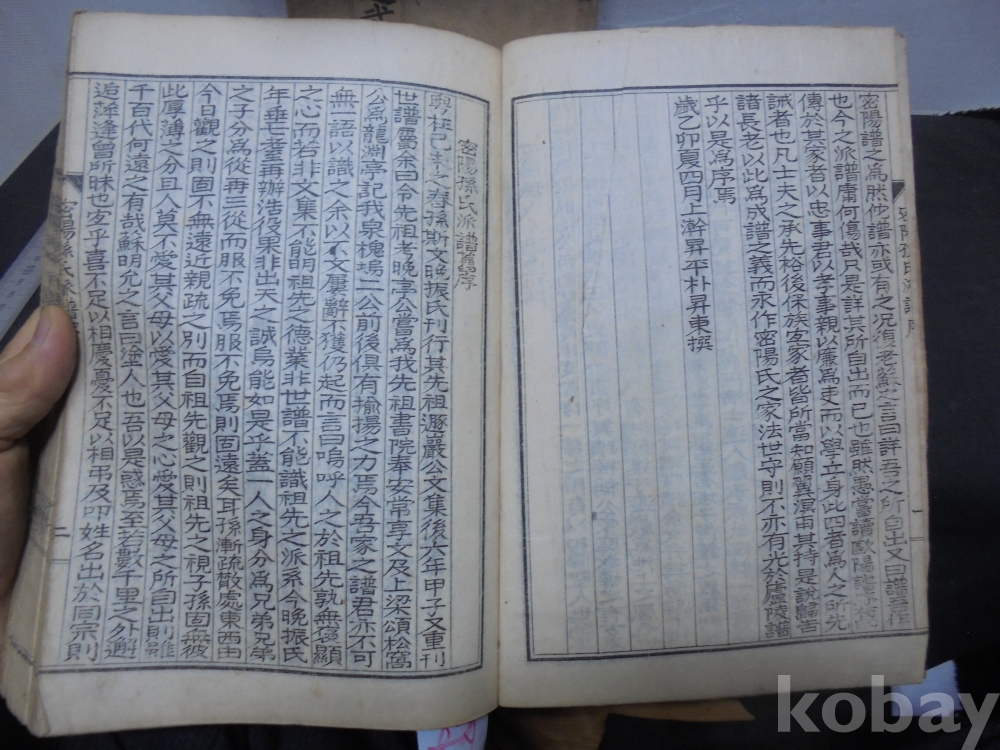 密陽譜之爲然他譜亦或有之況復老蘇之言曰詳吾之所自出又曰譜吾作
也今之派譜庸何傷哉只是詳其所自出而已也雖然愚嘗讀歐陽譜
傳於其家者以忠事君以孝事親以廉爲吏而以學立身此四者爲人之所先
誡者也凡士夫之承先裕後保族宏家者皆所當知顧翼溟甫其持是說歸告
諸長老以此爲成譜之義而永作密陽氏之家法世守則不亦有光於廬陵譜
乎以是爲序焉
歲乙卯夏四月上澣昇平朴昇東撰
密陽孫氏派譜舊序
粤在己未之春孫斯文晚振氏刊行其先祖遯巖公文集後六年甲子又重刊
世譜屬余曰令先祖考晚亭公嘗爲我先祖書院奉安常享文及上梁頌松窩
公爲龍湖亭記我泉槐塢二公前後俱有揄揚之力焉今吾家之譜君亦不可
無一語以識之余以不文屢辭不獲仍起而言曰嗚呼人之於祖先孰無褒顯
之心而若非文集不能明祖先之德業非世譜不能識祖先之派系今晚振氏
年垂七耋再辦浩役果非出天之誠烏能如是乎蓋一人之身分爲兄弟兄弟
之子分爲從再三從而服不免焉服不免焉則固遠矣耳孫漸疏散處東西由
今日觀之則固不無遠近親疏之別而自祖先觀之則祖先之視子孫固無彼
此厚薄之分且人莫不愛其父母以愛其父母之心愛其父母之所自出則雖
千百代何遠之有哉蘇明允之言曰塗人也吾以是慼焉至若數千里之外邂
逅萍逢曾所昧也宏乎喜不足以相慶憂不足以相弔及叩姓名出於同宗則
密陽孫氏派譜
二
kobay